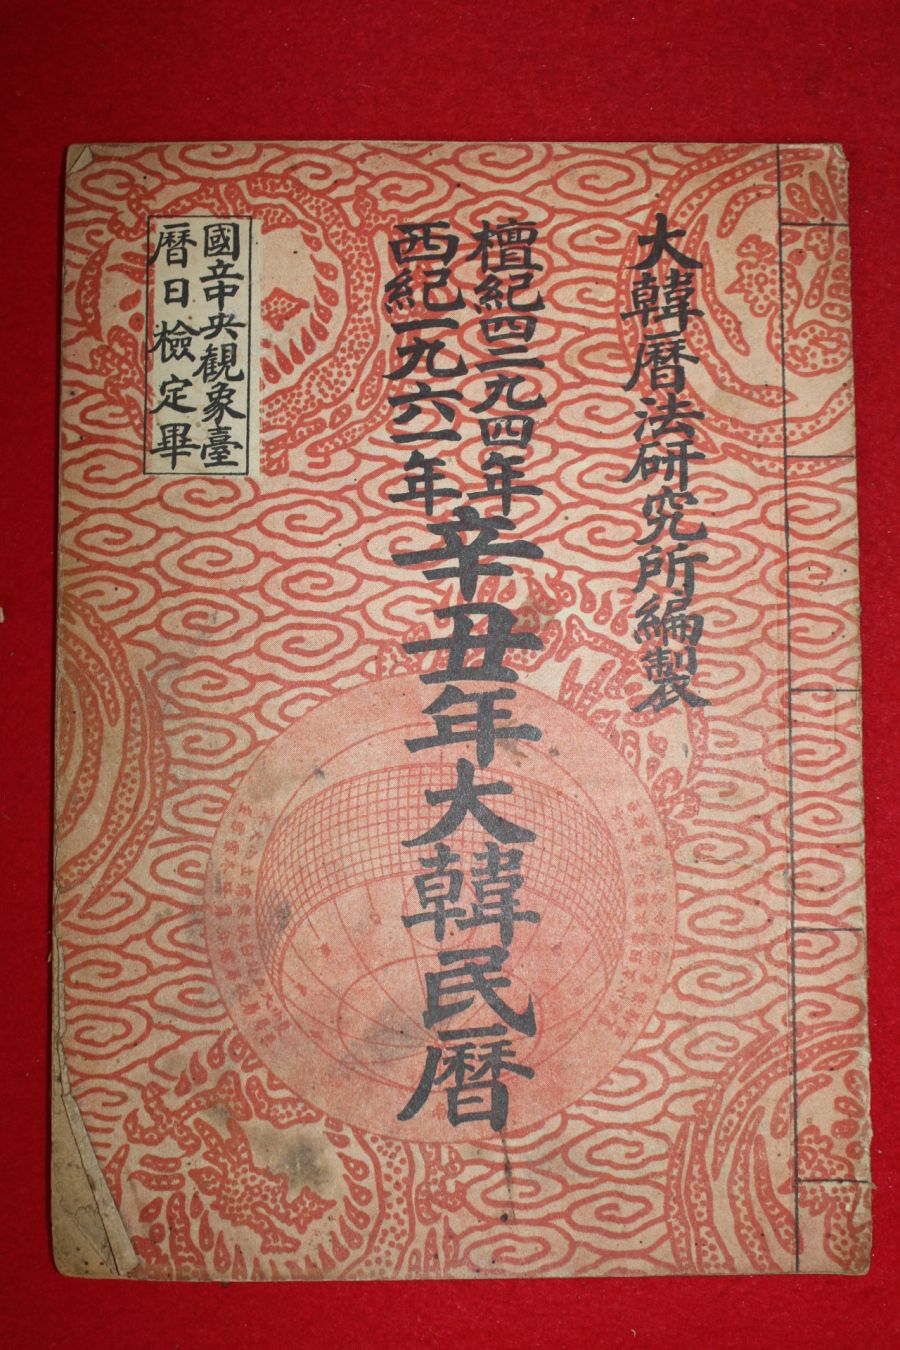 大韓曆法研究所編製
檀紀四二九四年
西紀一九六一年
辛丑年大韓民曆
國立中央観象臺
曆日檢定畢